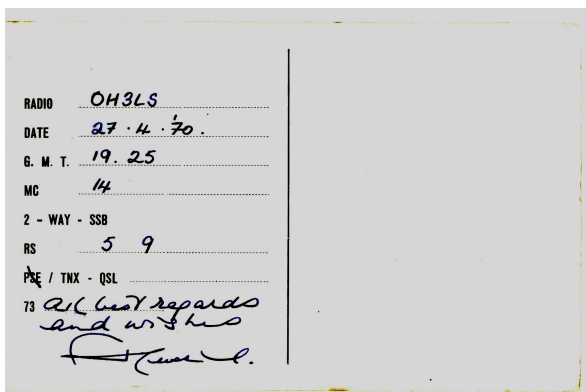 RADIO OH3LS
DATE 27.4.'70.
G. M. T. 19.25
MC 14
2 - WAY - SSB
RS 5 9
PSE / TNX - QSL
73 all best regards
and wishes